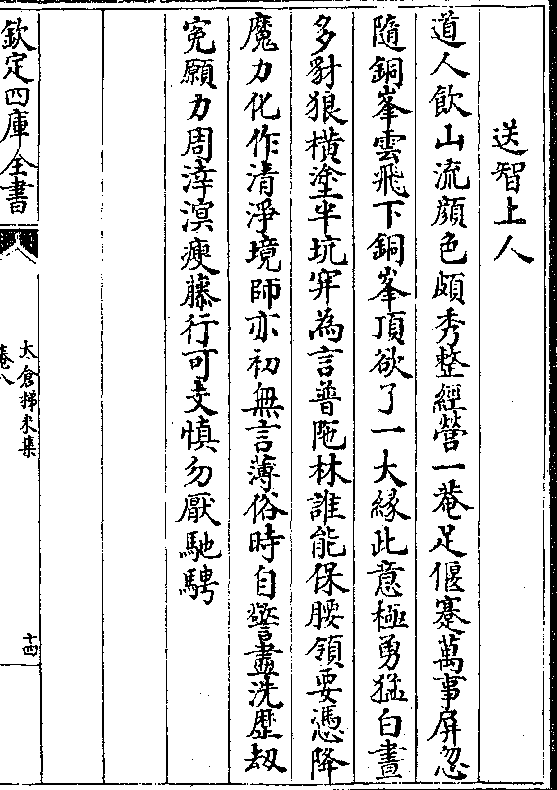 送智上人
道人飲山流顔色頗秀整經營一菴足偃蹇萬事屏忽
隨銅峯雲飛下銅峯頂欲了一大緣此意極勇猛白晝
多豺狼橫塗半坑穽為言普陁林誰能保腰領要憑降
魔力化作清淨境師亦初無言薄俗時自警盡洗歴刼
寃願力周漳溟瘦藤行可支慎勿厭馳騁
欽定四庫全書
太倉稊米集
卷八
十四